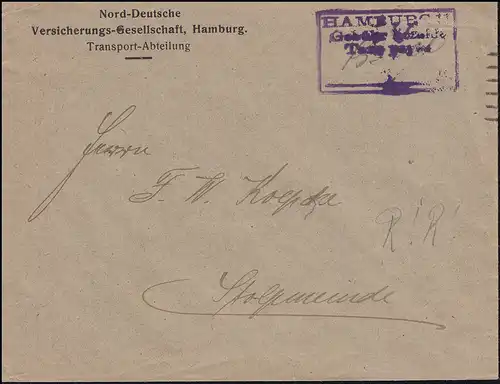 Nord-Deutsche
Versicherungs-Gesellschaft, Hamburg.
Transport-Abteilung
HAMBURG 11
Gebühr bezahlt
Taxe perçue
Herrn
F. W. Koepke
R! R!
Stolpmuende